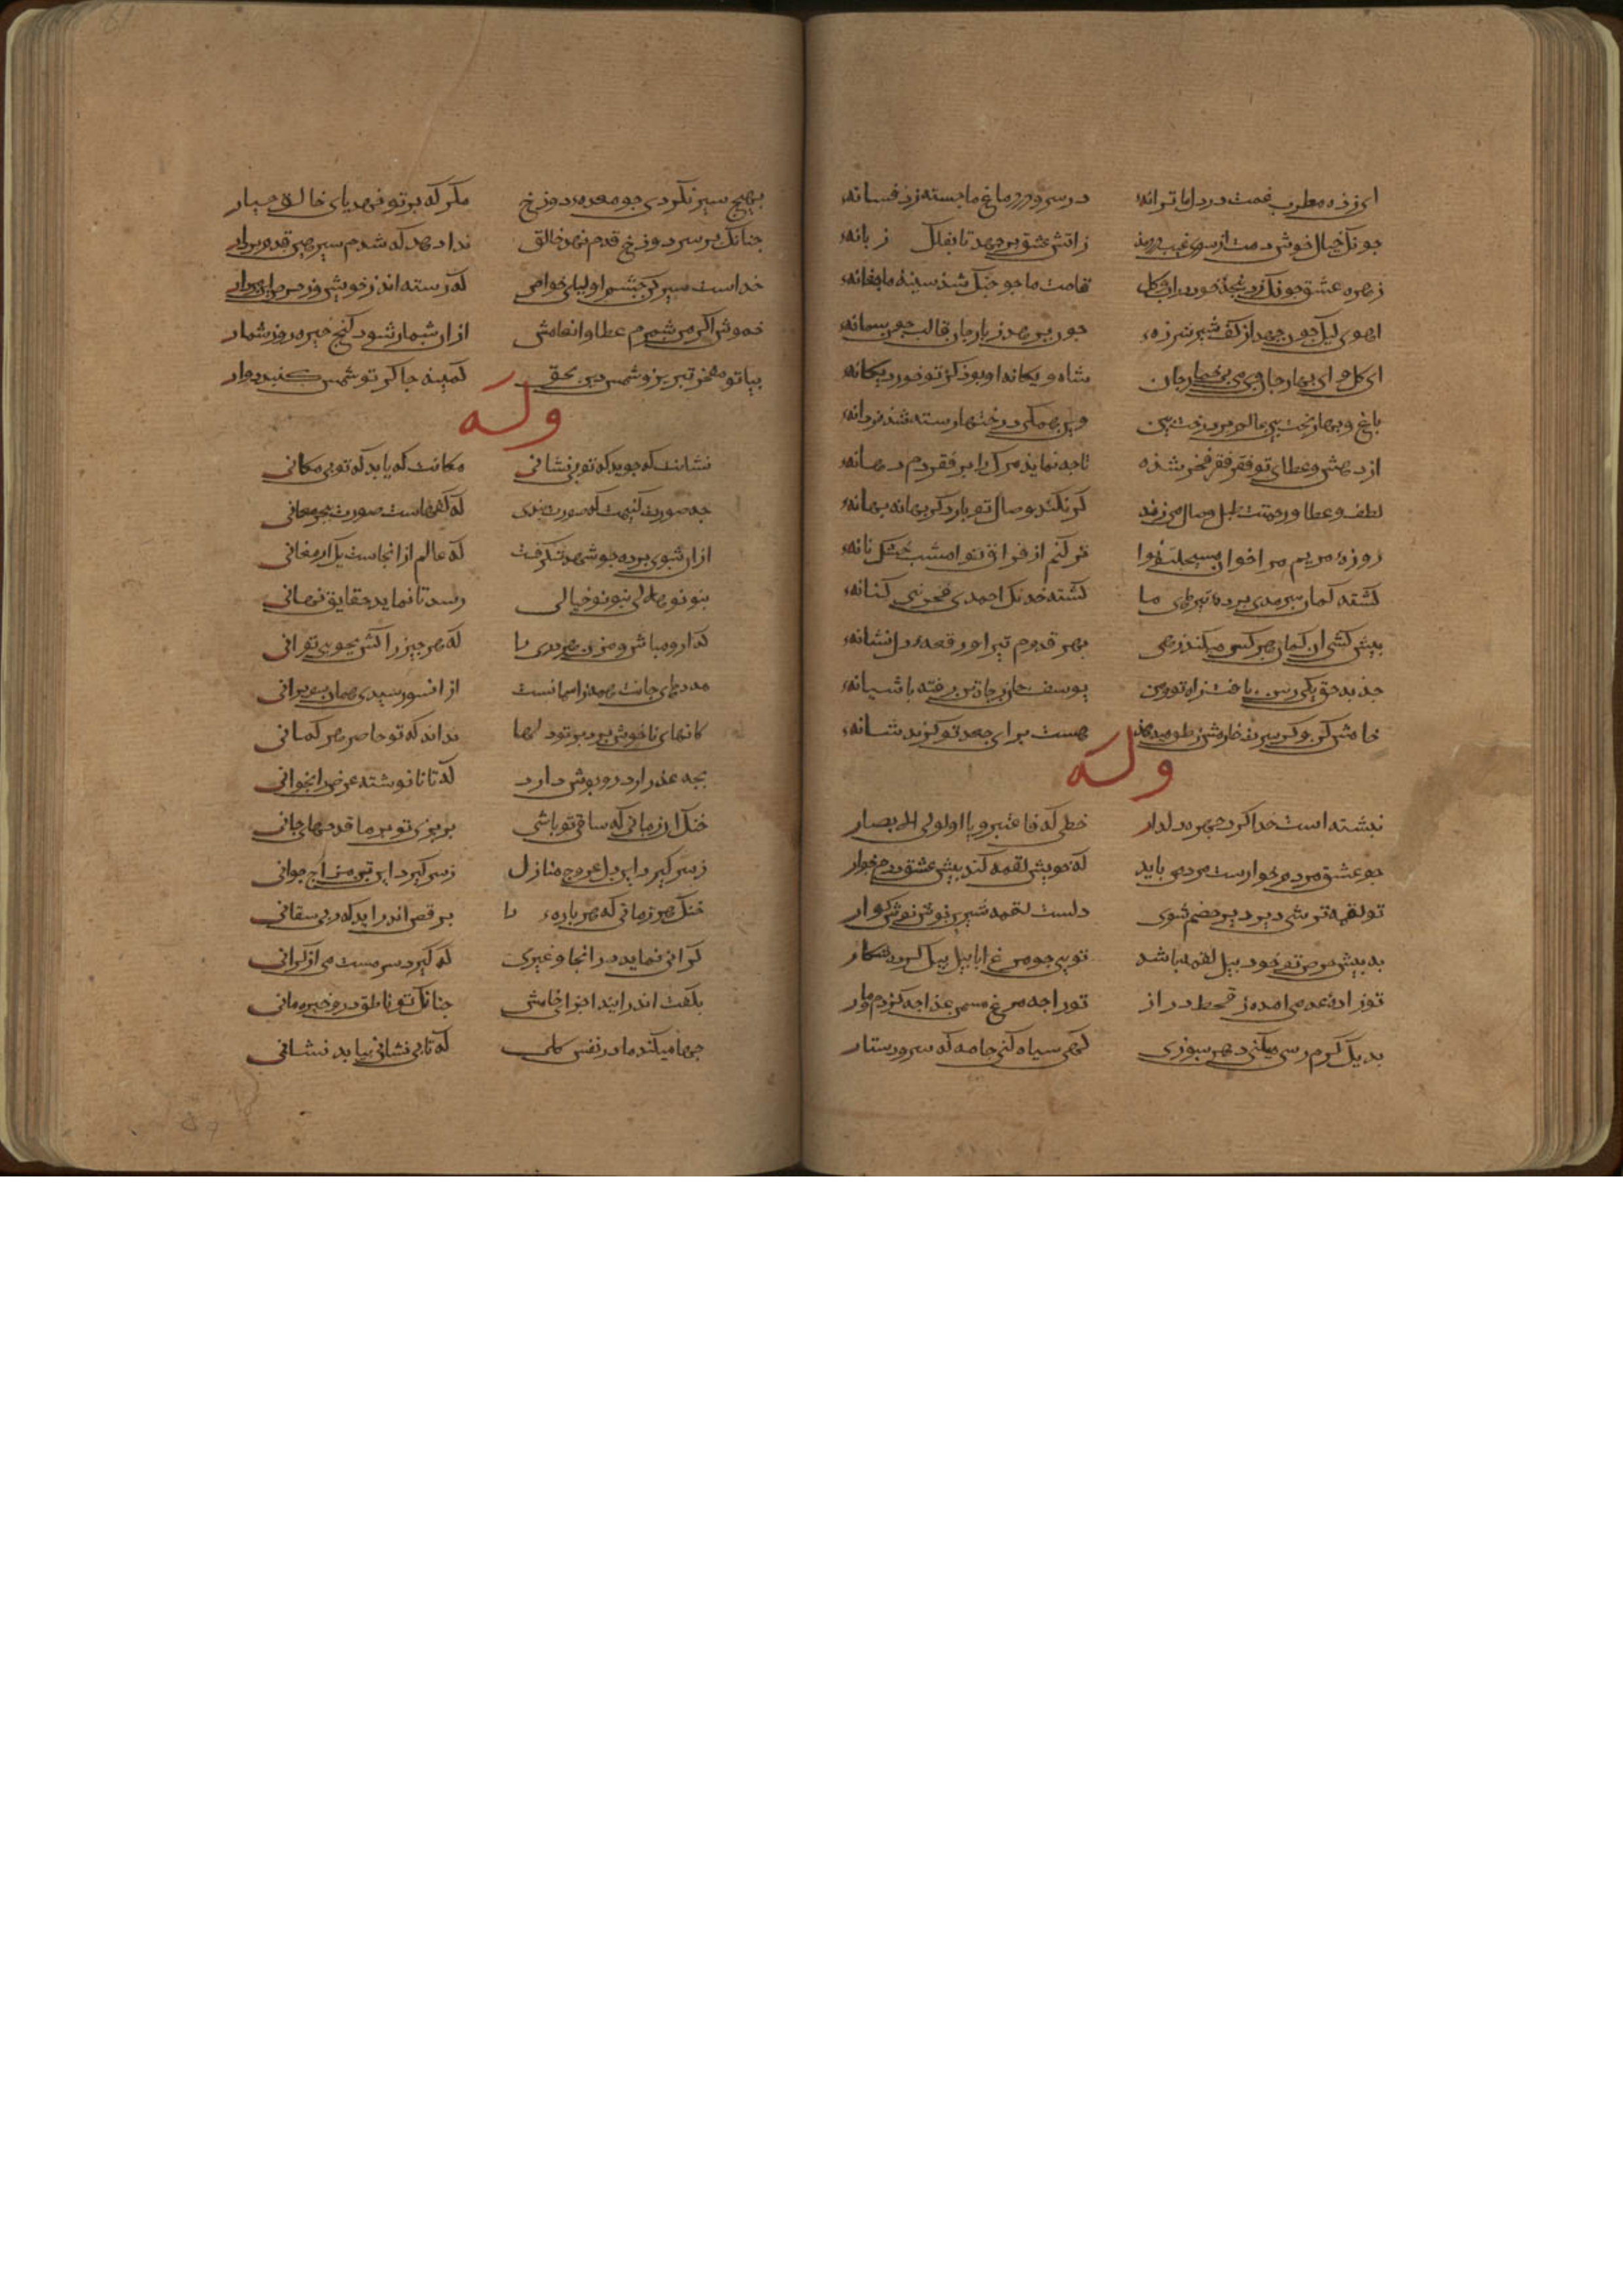 ای زذه مطرب غمت در دل ما ترانه در سر و در دماغ ما جسته ز تو فسانه
چونک خیال خوش دمت از سوی غیب ز اتش عشق برجهد تا بفلک زبانه
زهره عشق چونک زد پنجه خود در اب و کل قامت ما چو چنک شذ سینه ما چغانه
اهوی لنک چون جهد از کف شیر شرزه چون برهد ز باز جان قالب چون سمانه
ای کل و ای بهار جان وی می و ای خمار جان شاه و یکانه او بوذ کز تو خورد یکانه
باغ و بهار و بخت بین عالم پر درخت بین وین همکی درختها رسته شذه ز دانه
از دهش و عطای تو فقر فقیر فخر شذه تا چه نماید مرک را بر فقر دم دهانه
لطف و عطا و رحمتت طبل وصال می زند کر نکند وصال تو بار دکر بهانه بهانه
روزه مریم مرا خوان مسیحیت نوا تر کنم از فراق تو امشب خشک نانه
کشته کمان سرمدی برده تیرهای ما کشته خدنک احمدی فخر بنی کنانه
پیش کشی ان کمان هر کس میکند زهی بهر قدوم تیر او رقعه دل نشانه
جذبه حق یکی رسن یافت ز اه تو و من یوسف جان ز چاه تن رفته باشیانه
خامش کن هست برای جعد تو کزیده شانه
وله
نبشته است خدا کرد چهره دلدار خطی که فاعتبروا یا اولی الابصار
چو عشق مردم خوارست مردمی باید که خویش لقمه کند پیش عشق مردم خوار
تو لقمه ترشی دیر دیر هضم شوی دلست لقمه شیرین نوش نوش کوار
به پیش حرص تو خود پیل لقمه باشد تویی چو مرغ ابابیل پیل کرده شکار
تو زاده عدمی امده ز قحط دراز تو را چه مرغ مسمن غذا چه کژدم و مار
بدیک کرم رسی میکنی دهن سوزی کهی سیاه کنی جامه که سر و دستار
بهیچ سیر نکردی چو معده دوزخ مکر که بر تو نهد پای خالق جبار
چنانک بر سر دوزخ قدم نهد خالق ندا دهد که شدم سیر هین قدم بردار
خداست سیر کن چشم اولیا و خواص که رسته اند ز خویش و ز حرص این مردار
خموش اکر من شمرم عطا و انعامش از ان شمار شود کیج خیره روز شمار
بیا تو مفخر تبریز و شمس دین بحق کمینه چاکر تو شمس کنبد دوار
وله
نشانت که جوید که تو بی نشانی مکانت که یابد که تو بی مکانی
چه صورت کنیمت که صورت نبندی که کفهاست صورت ببحر معانی
از ان سوی پرده چو شهر شکرفت که عالم از انجاست یک ارمغانی
بنو نو هلالی بنو نو خیالی رسد تا نماید حقایق نهانی
کدارو مباش و مزن هر دری را که هر چیز را کش بجویی تو انی
دلا خیمه جانت همه راسمانست از انسو رسیدی همان سوی روانی
کمانهای ناخوش برد بر تو دلها نداند که تو حاضر هر کمانی
بچه عذر ارد دروپوش دارد که تا نا نوشته غرض را بخوانی
خنک ان زمانی که ساقی تو باشی بریزی تو بر ما قدحهای جانی
ز سر کیرد این دل عروج منازل ز سر کیرد این تن مزاج جوانی
خنک هر زمانی که هر پاره ما برقص اندر اید که ربی سقانی
کرانی نماید در انجا و غیری که کیرد سر مست می از کرانی
بکفت اندر ایند اجزا خامش چنانک تو ناطق درو خیره مانی
چها میکند مادر نفس کلی که تا بی نشانی بیابد نشانی